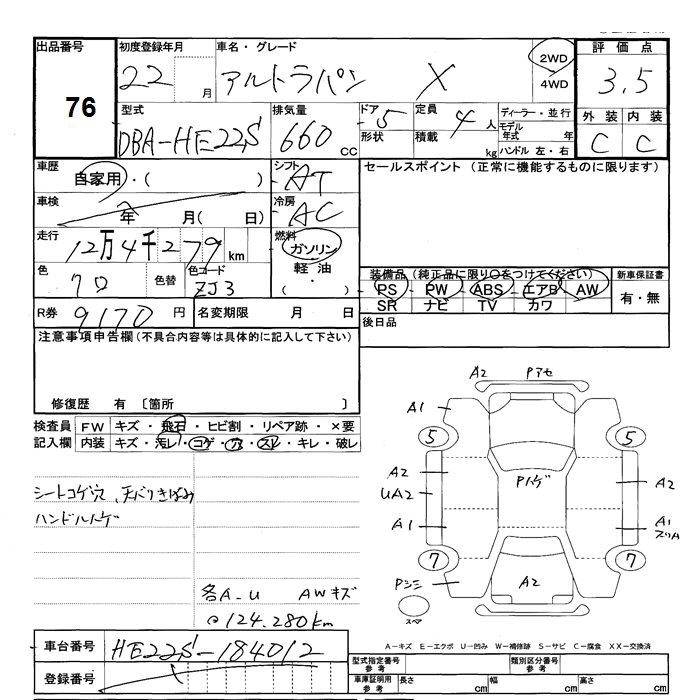 出品番号 初度登録年月 車名・グレード 2WD 4WD 評価点
76 22 月 アルトラパン X 3.5
型式 排気量 ドア 5 定員 4 人 ディーラー・並行 外装 内装
DBA-HE22S 660 cc 形状 積載 kg モデル年式 年 C C
ハンドル 左・右
車歴 自家用・( ) シフト AT セールスポイント (正常に機能するものに限ります)
車検 年 月( 日) 冷房 AC
走行 12万4千279km 燃料 ガソリン 軽油・( )
色 クロ 色替 色コード ZJ3
装備品 (純正品に限り○をつけてください) 新車保証書
PS PW ABS エアB AW 有・無
SR ナビ TV カワ
R券 9170 円 名変期限 月 日 後日品
注意事項申告欄(不具合内容等は具体的に記入して下さい)
修復歴 有 〔箇所 〕
検査員 FW キズ・飛石・ヒビ割・リペア跡・×要
記入欄 内装 キズ・汚レ・コゲ・穴・スレ・キレ・破レ
シートコゲ穴、天バリきばみ
ハンドルハゲ
各A.U AWキズ
@124.280km
A2 Pアセ
A1
5 5
A2 Pハゲ A2
UA2
A1 A1
スリA
7 7
Pシミ A2
スペア
A-キズ E-エクボ U-凹み W-補修跡 S-サビ C-腐食 XX-交換済
車台番号 HE22S-184012
登録番号
型式指定番号 参考 類別区分番号 参考
車庫証明用 参考 長さ cm 幅 cm 高さ cm